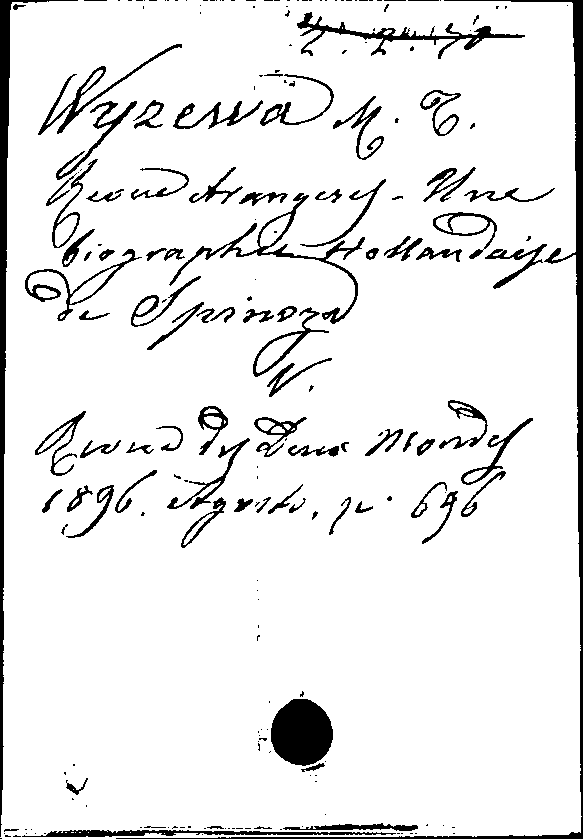 2. 2. 70
Wyzewa M. T.
Revue étrangères - Une
biographie Hollandaise
de Spinoza
V.
Revue des Deux Mondes
1896. Agosto, p. 696